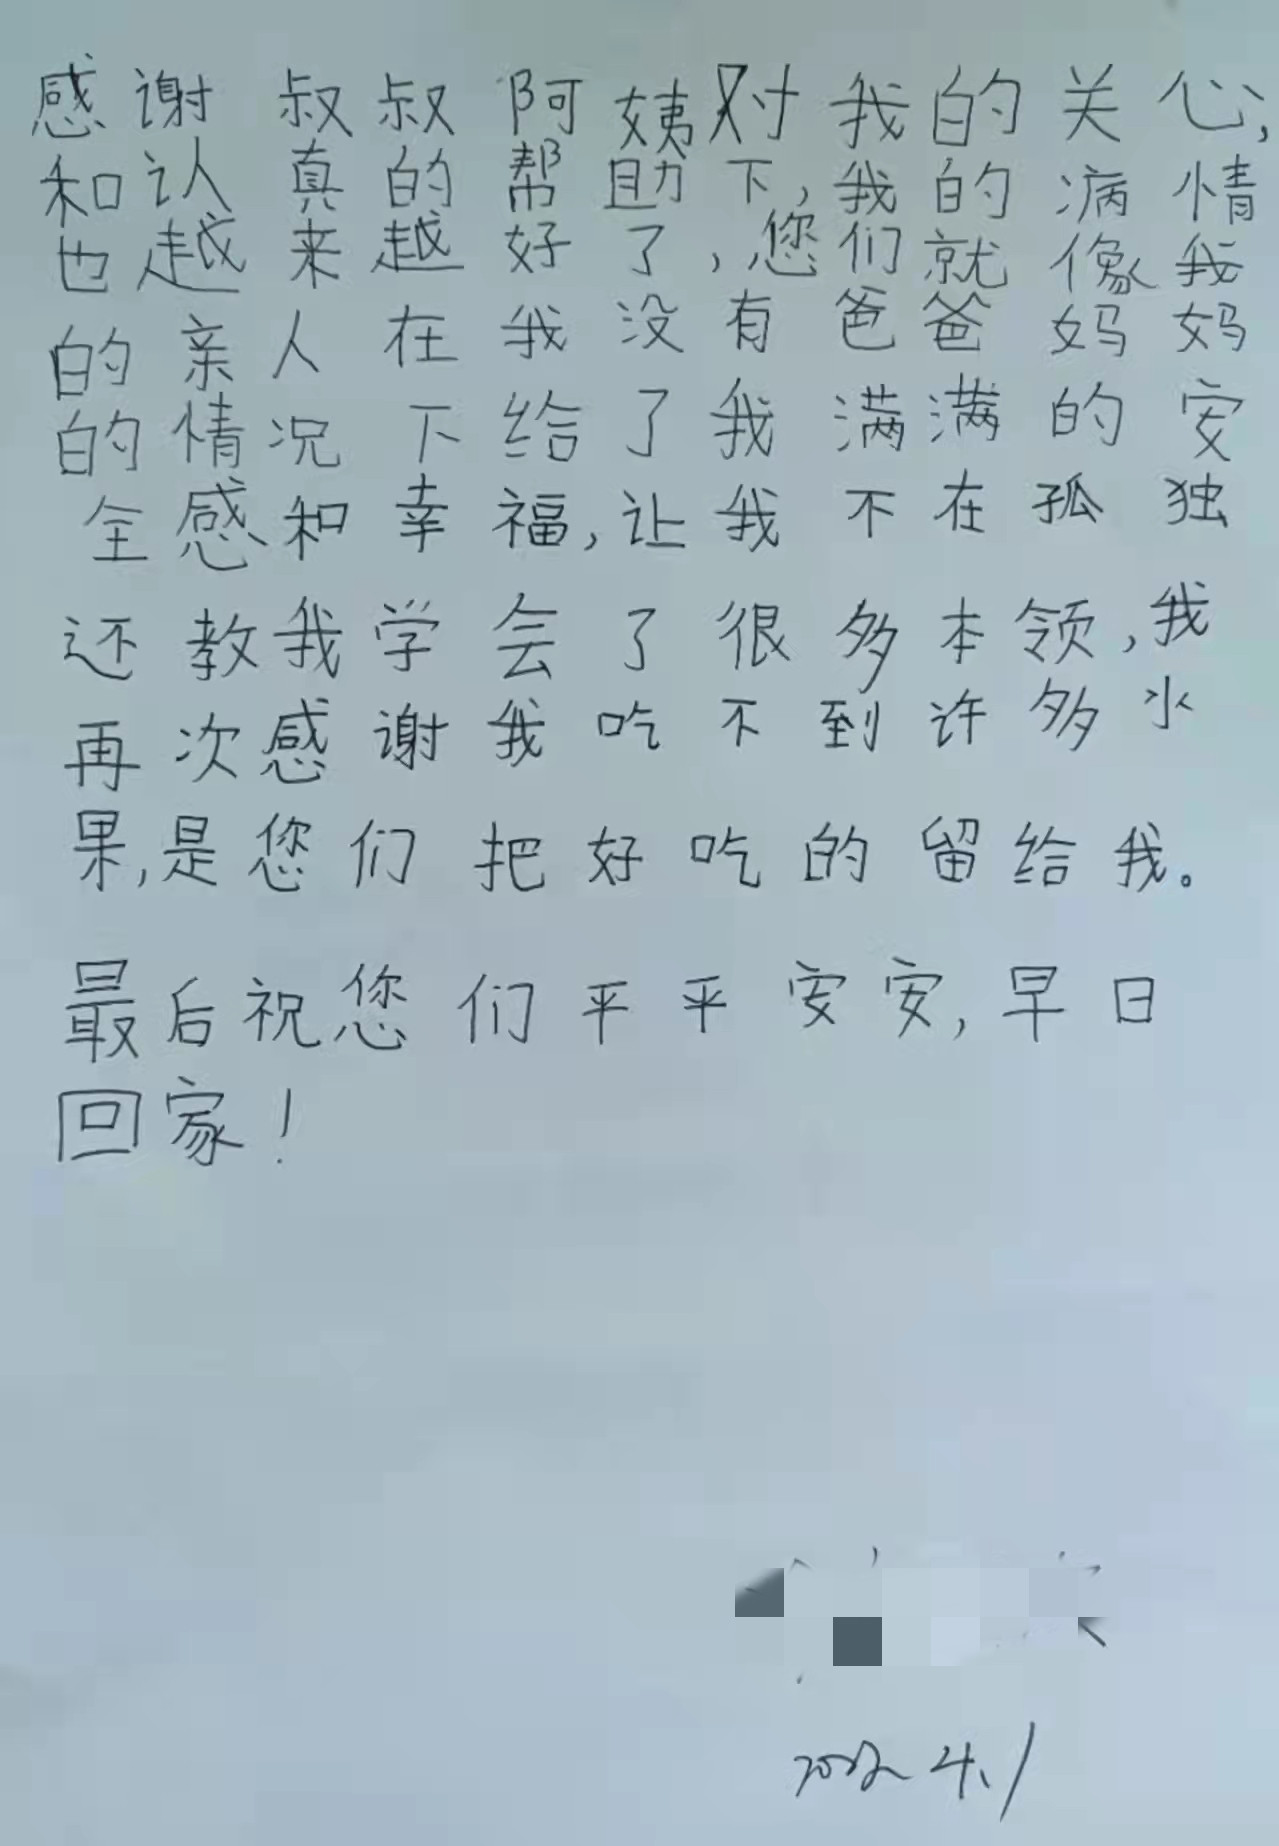 感谢叔叔阿姨对我的关心,
和认真的帮助下,我的病情
也越来越好了,您们就像我
的亲人在我没有爸爸妈妈
的情况下给了我满满的安
全感和幸福,让我不在孤独
还教我学会了很多本领,我
再次感谢我吃不到许多水
果,是您们把好吃的留给我。
最后祝您们平平安安,早日
回家!
2022.4.1